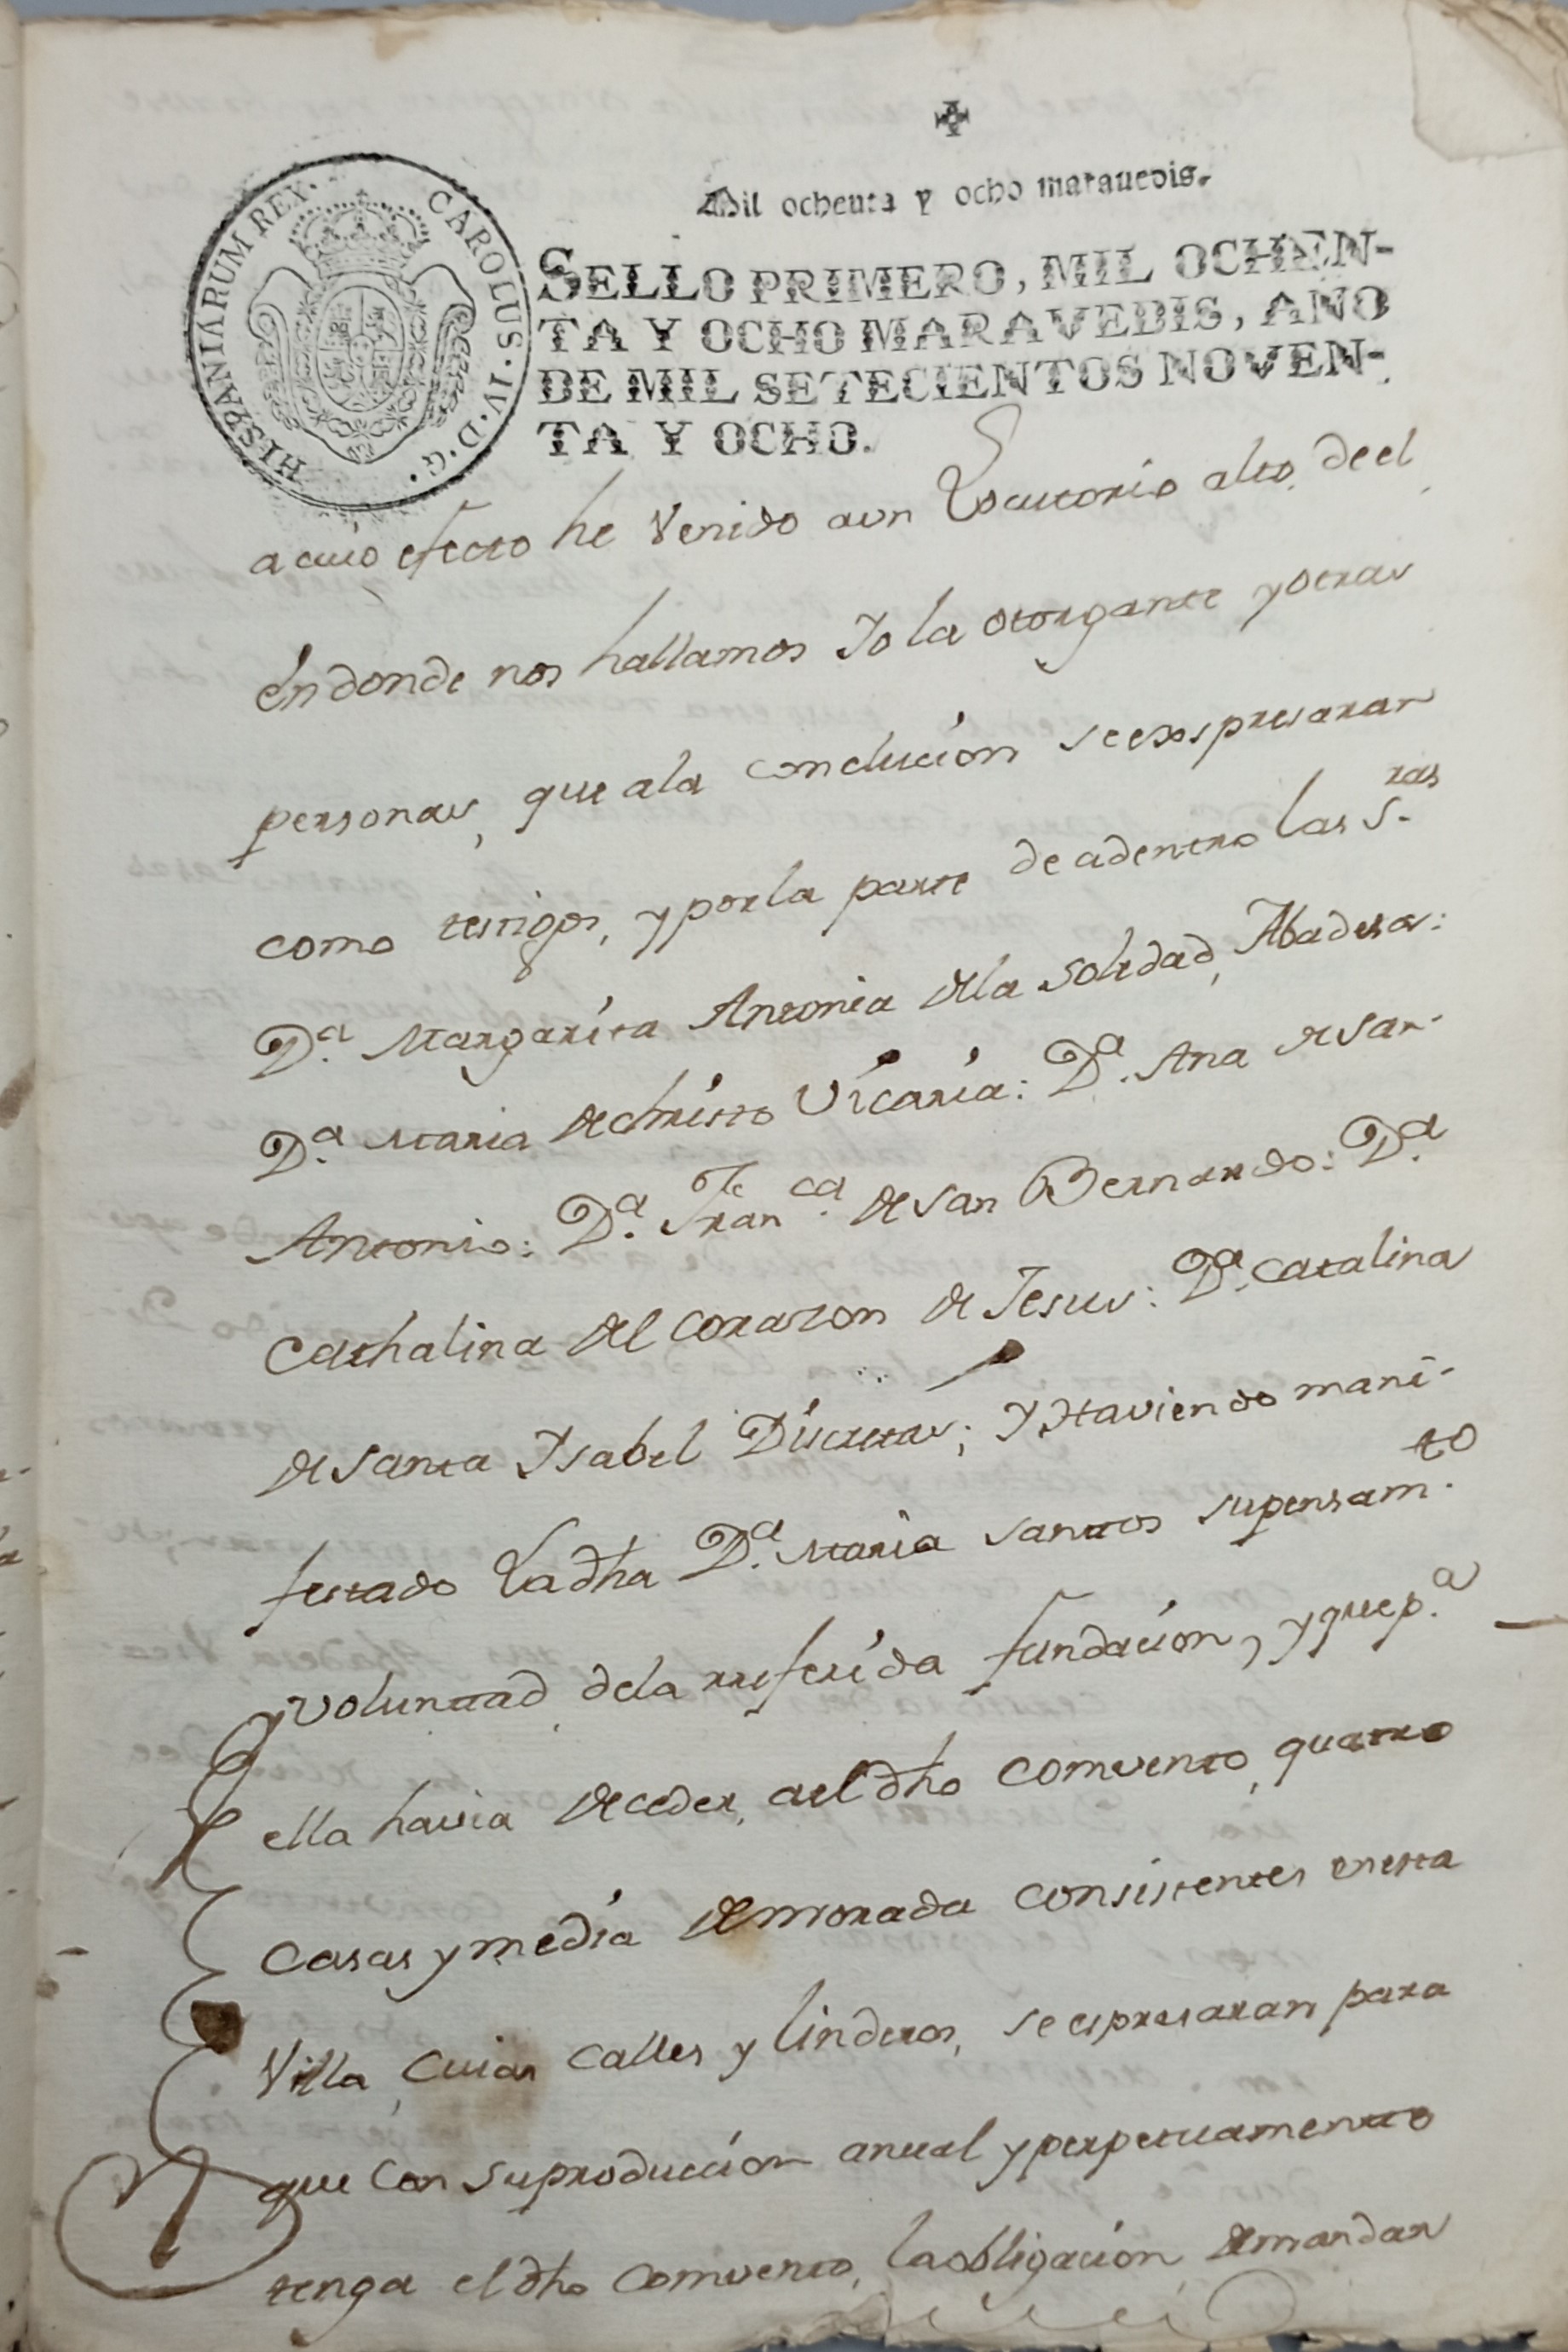 Mil ochenta y ocho maravedis.
HISPANIARUM REX. CAROLUS. IV. D. G.
SELLO PRIMERO, MIL OCHEN-
TA Y OCHO MARAVEDIS, AÑO
DE MIL SETECIENTOS NOVEN-
TA Y OCHO.
a cuio efecto he Venido a un Locutorio alto, de el
én donde nos hallamos Yo la otorgante y otras
personas, que a la conclucion se exspresaran
como testigos, y por la parte de adentro las S.ras
D.a Margarita Antonia de la Soledad, Abadesa:
D.a Maria de christo Vicaria: D.a Ana de San
Antonio: D.a Fran.ca de San Bernardo: D.a
Cathalina del Corazon de Jesus: D.a Catalina
de Santa Ysabel Discretas; Y Haviendo mani-
festado La dha D.a Maria Santos su pensam.to
y voluntad de la rreferida fundacion, y que p.a
ella havia de ceder, a el dho Comvento, quatro
Casas y media de morada consistentes en esta
Villa, cuias calles y linderos, se espresaran para
que Con su produccion anual y perpetuamente
tenga el dho Comvento, la obligacion de mandar